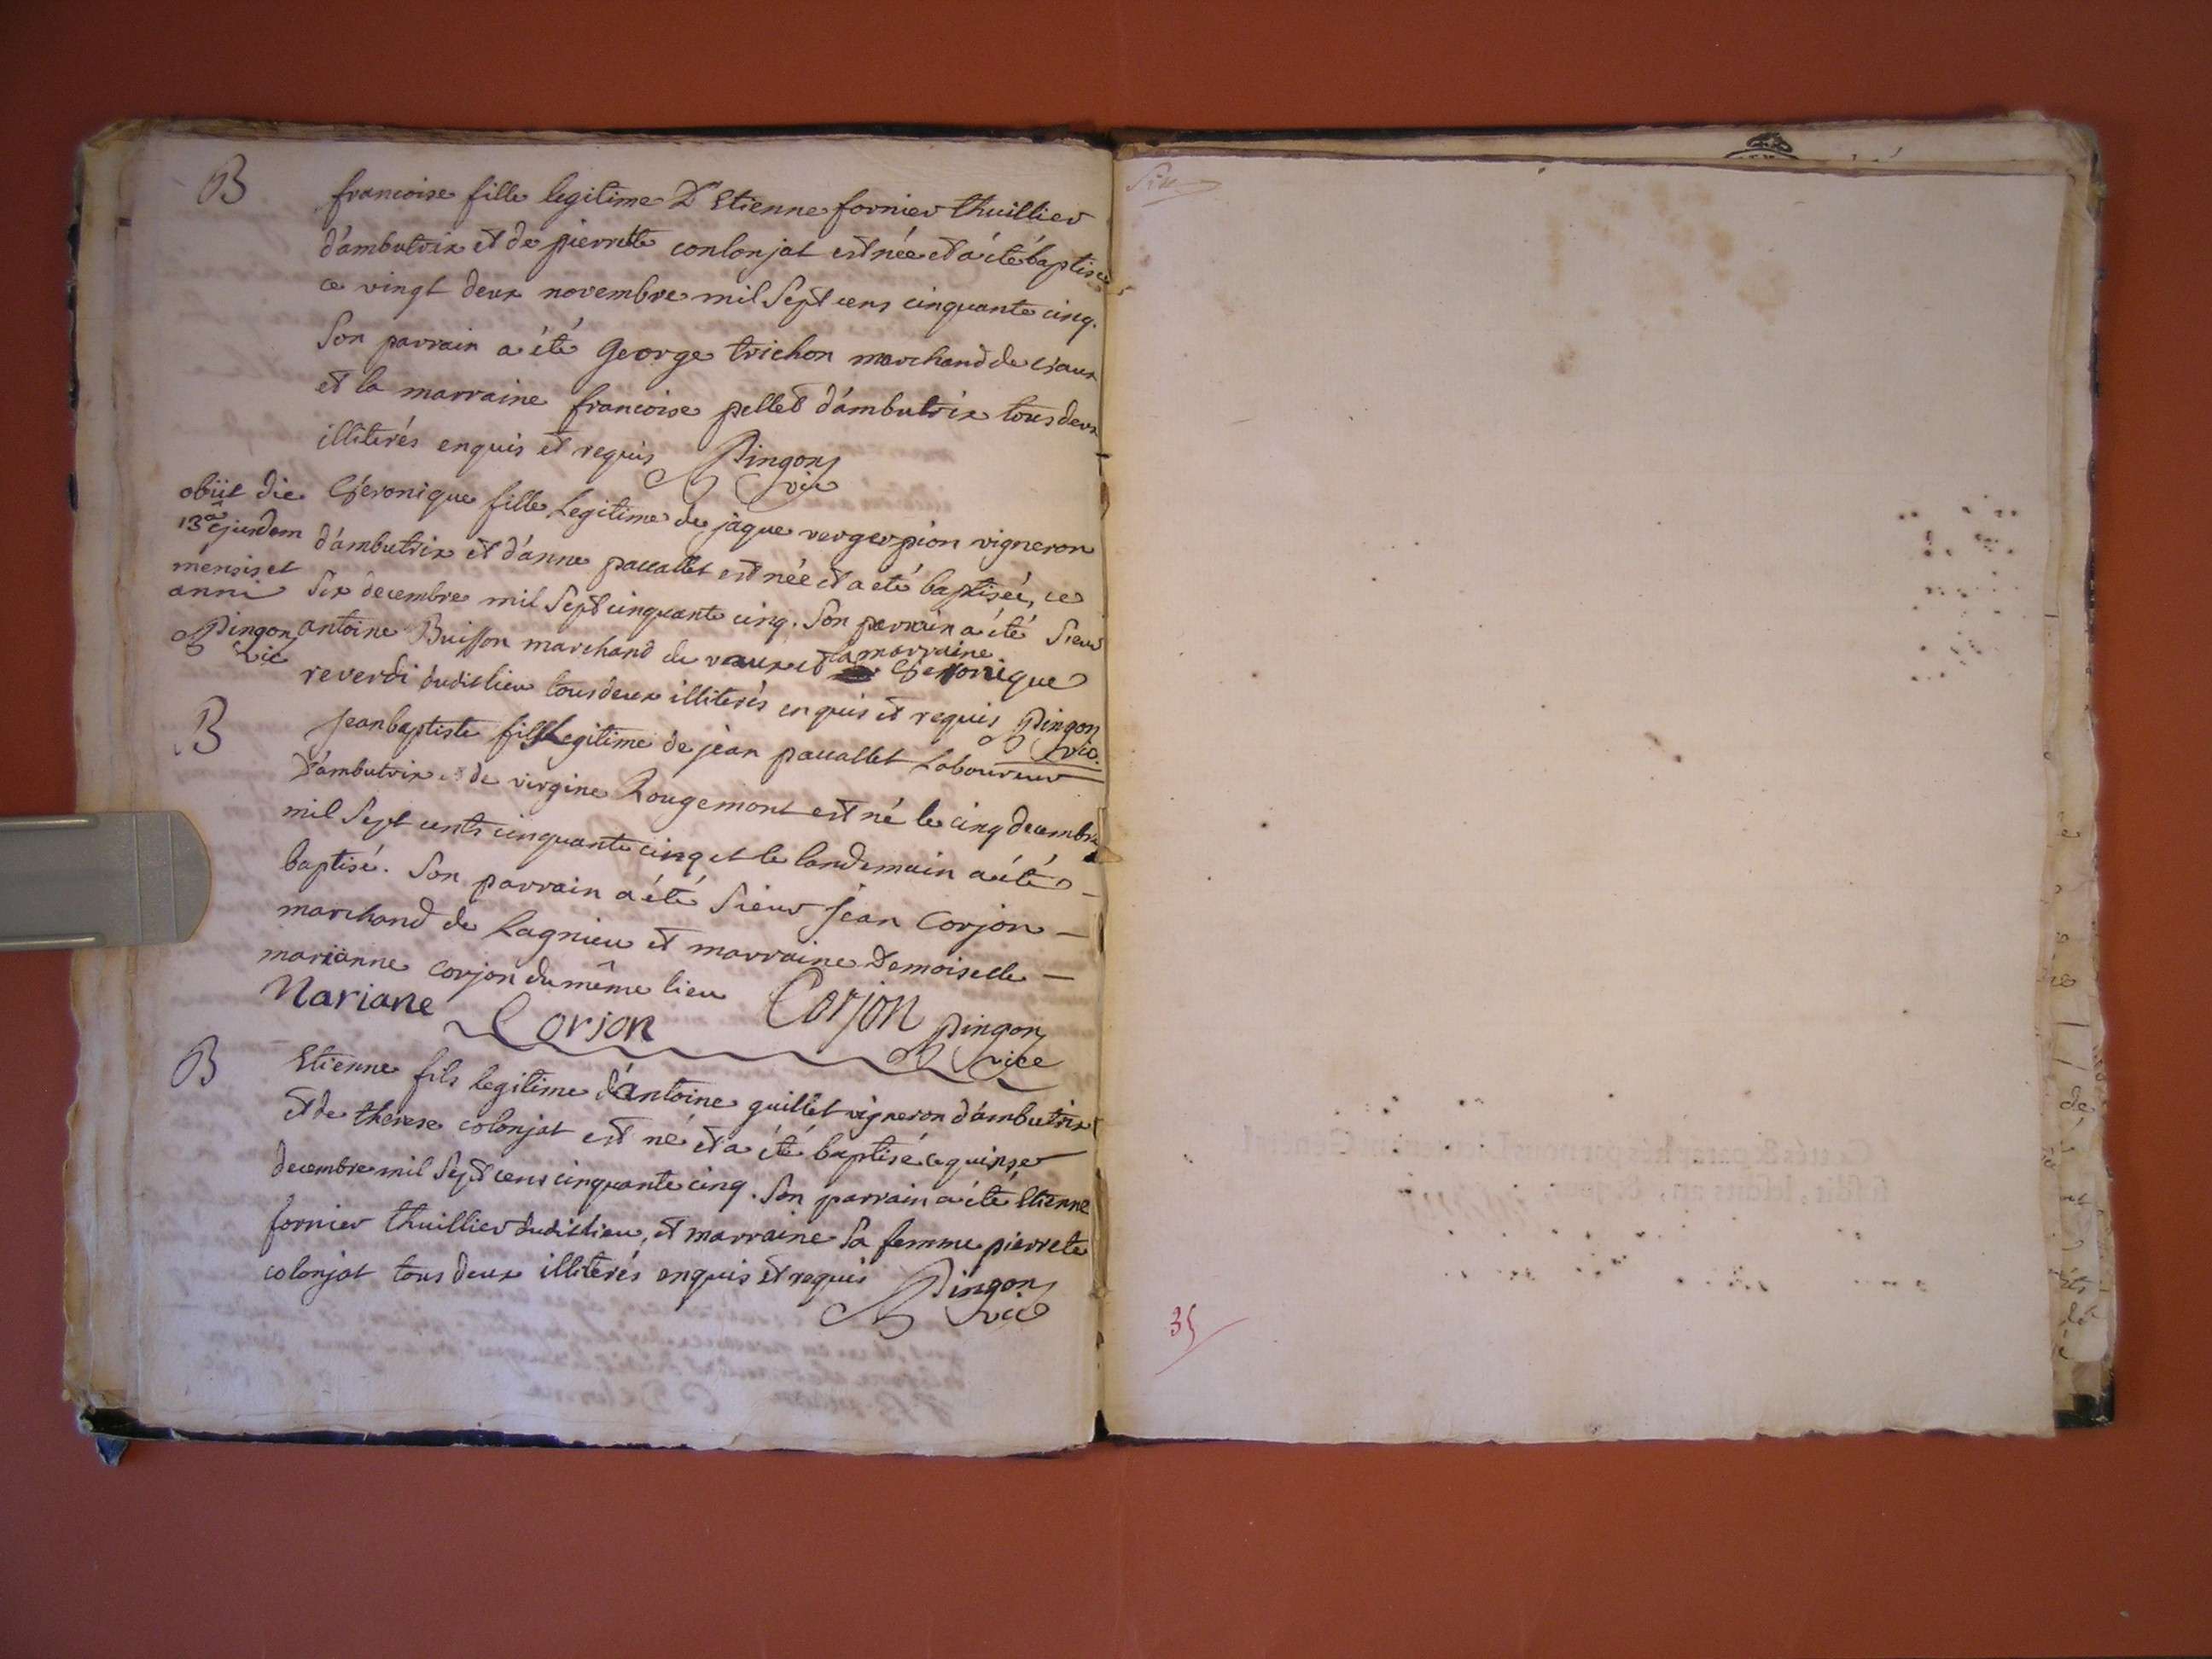 B
francoise fille legitime D'Etienne fornier thuillier
d'ambutrix et de pierrette conlonjat est née et a été baptisée
ce vingt deux novembre mil sept cens cinquante cinq.
Son parrain a été George trichon marchand de
et la marraine francoise pellet d'ambutrix tous deux
illiterés enquis et requis Pingon
vic
obiit die
13a ejusdem
mensis et
anni
Pingon
vic
Veronique fille Legitime de jàque vergerpion vigneron
d'ambutrix et d'anne pacallet est née et a eté baptiseé, ce
Six decembre mil sept cinquante cinq. Son parrain a été Sieur
antoine Buisson marchand de vaux et la marraine Veronique
reverdi dudit lieu tous deux illiterés enquis et requis Pingon
vic.
B
Jean baptiste fils Legitime de jèan pacallet Laboureur
D'ambutrix et de virgine Rougemont est né le cinq decembre
mil Sept cents cinquante cinq et le landemain a été
baptisé. Son parrain a été Sieur Jean Corjon
marchand de Lagnieu et marraine Demoiselle
marianne corjon du même lieu
Mariane Corjon Corjon Pingon
vice
B
Etienne fils legitime d'Antoine guillet vigneron d'ambutrix
et de therese colonjat est né et a été baptisé ce quinze
decembre mil Sept cens cinquante cinq. Son parrain a été Etienne
fornier thuillier dudit lieu, et marraine Sa femme pierrete
colonjat tous deux illiterés enquis et requis Pingon
vic
35